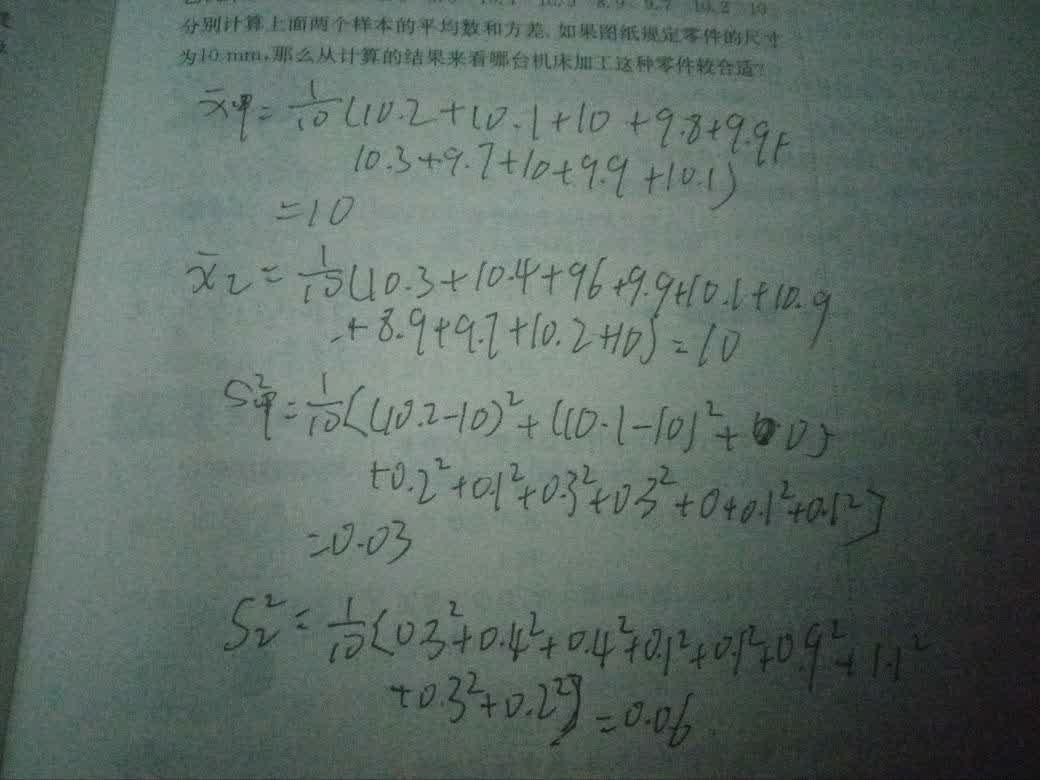 10.9 8.9 9.7 10.2 10
分别计算上面两个样本的平均数和方差.如果图纸规定零件的尺寸
为10 mm,那么从计算的结果来看哪台机床加工这种零件较合适?
x̄甲=1/10(10.2+10.1+10+9.8+9.9+
10.3+9.7+10+9.9+10.1)
=10
x̄乙=1/10(10.3+10.4+96+9.9+10.1+10.9
+8.9+9.7+10.2+10)=10
S²甲=1/10{(10.2-10)²+(10.1-10)²+0
+0.2²+0.1²+0.3²+0.3²+0+0.1²+0.1²}
=0.03
S²乙=1/10{0.3²+0.4²+0.4²+0.1²+0.1²+0.9²+1.1²
+0.3²+0.2²}=0.06